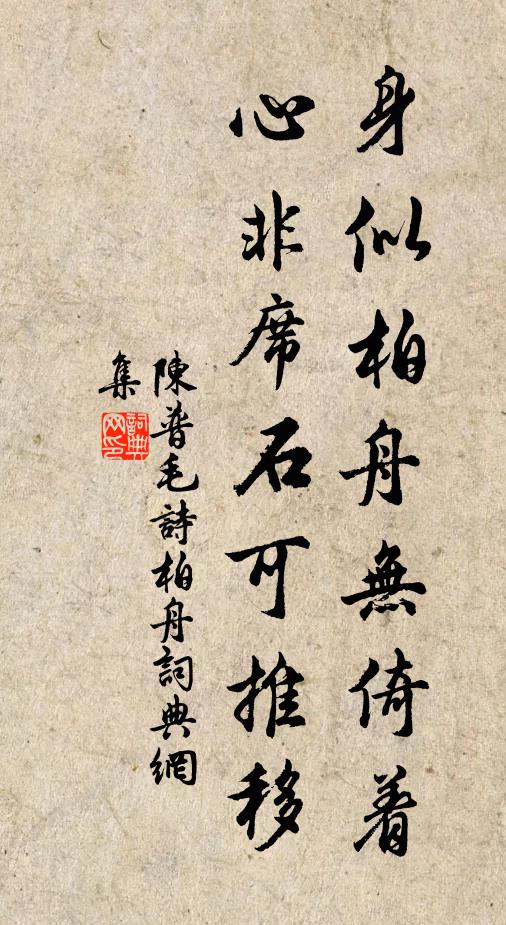 身似柏舟無倚着
心非席石可推移
陳普毛詩柏舟詞典網
集
詞典
网印